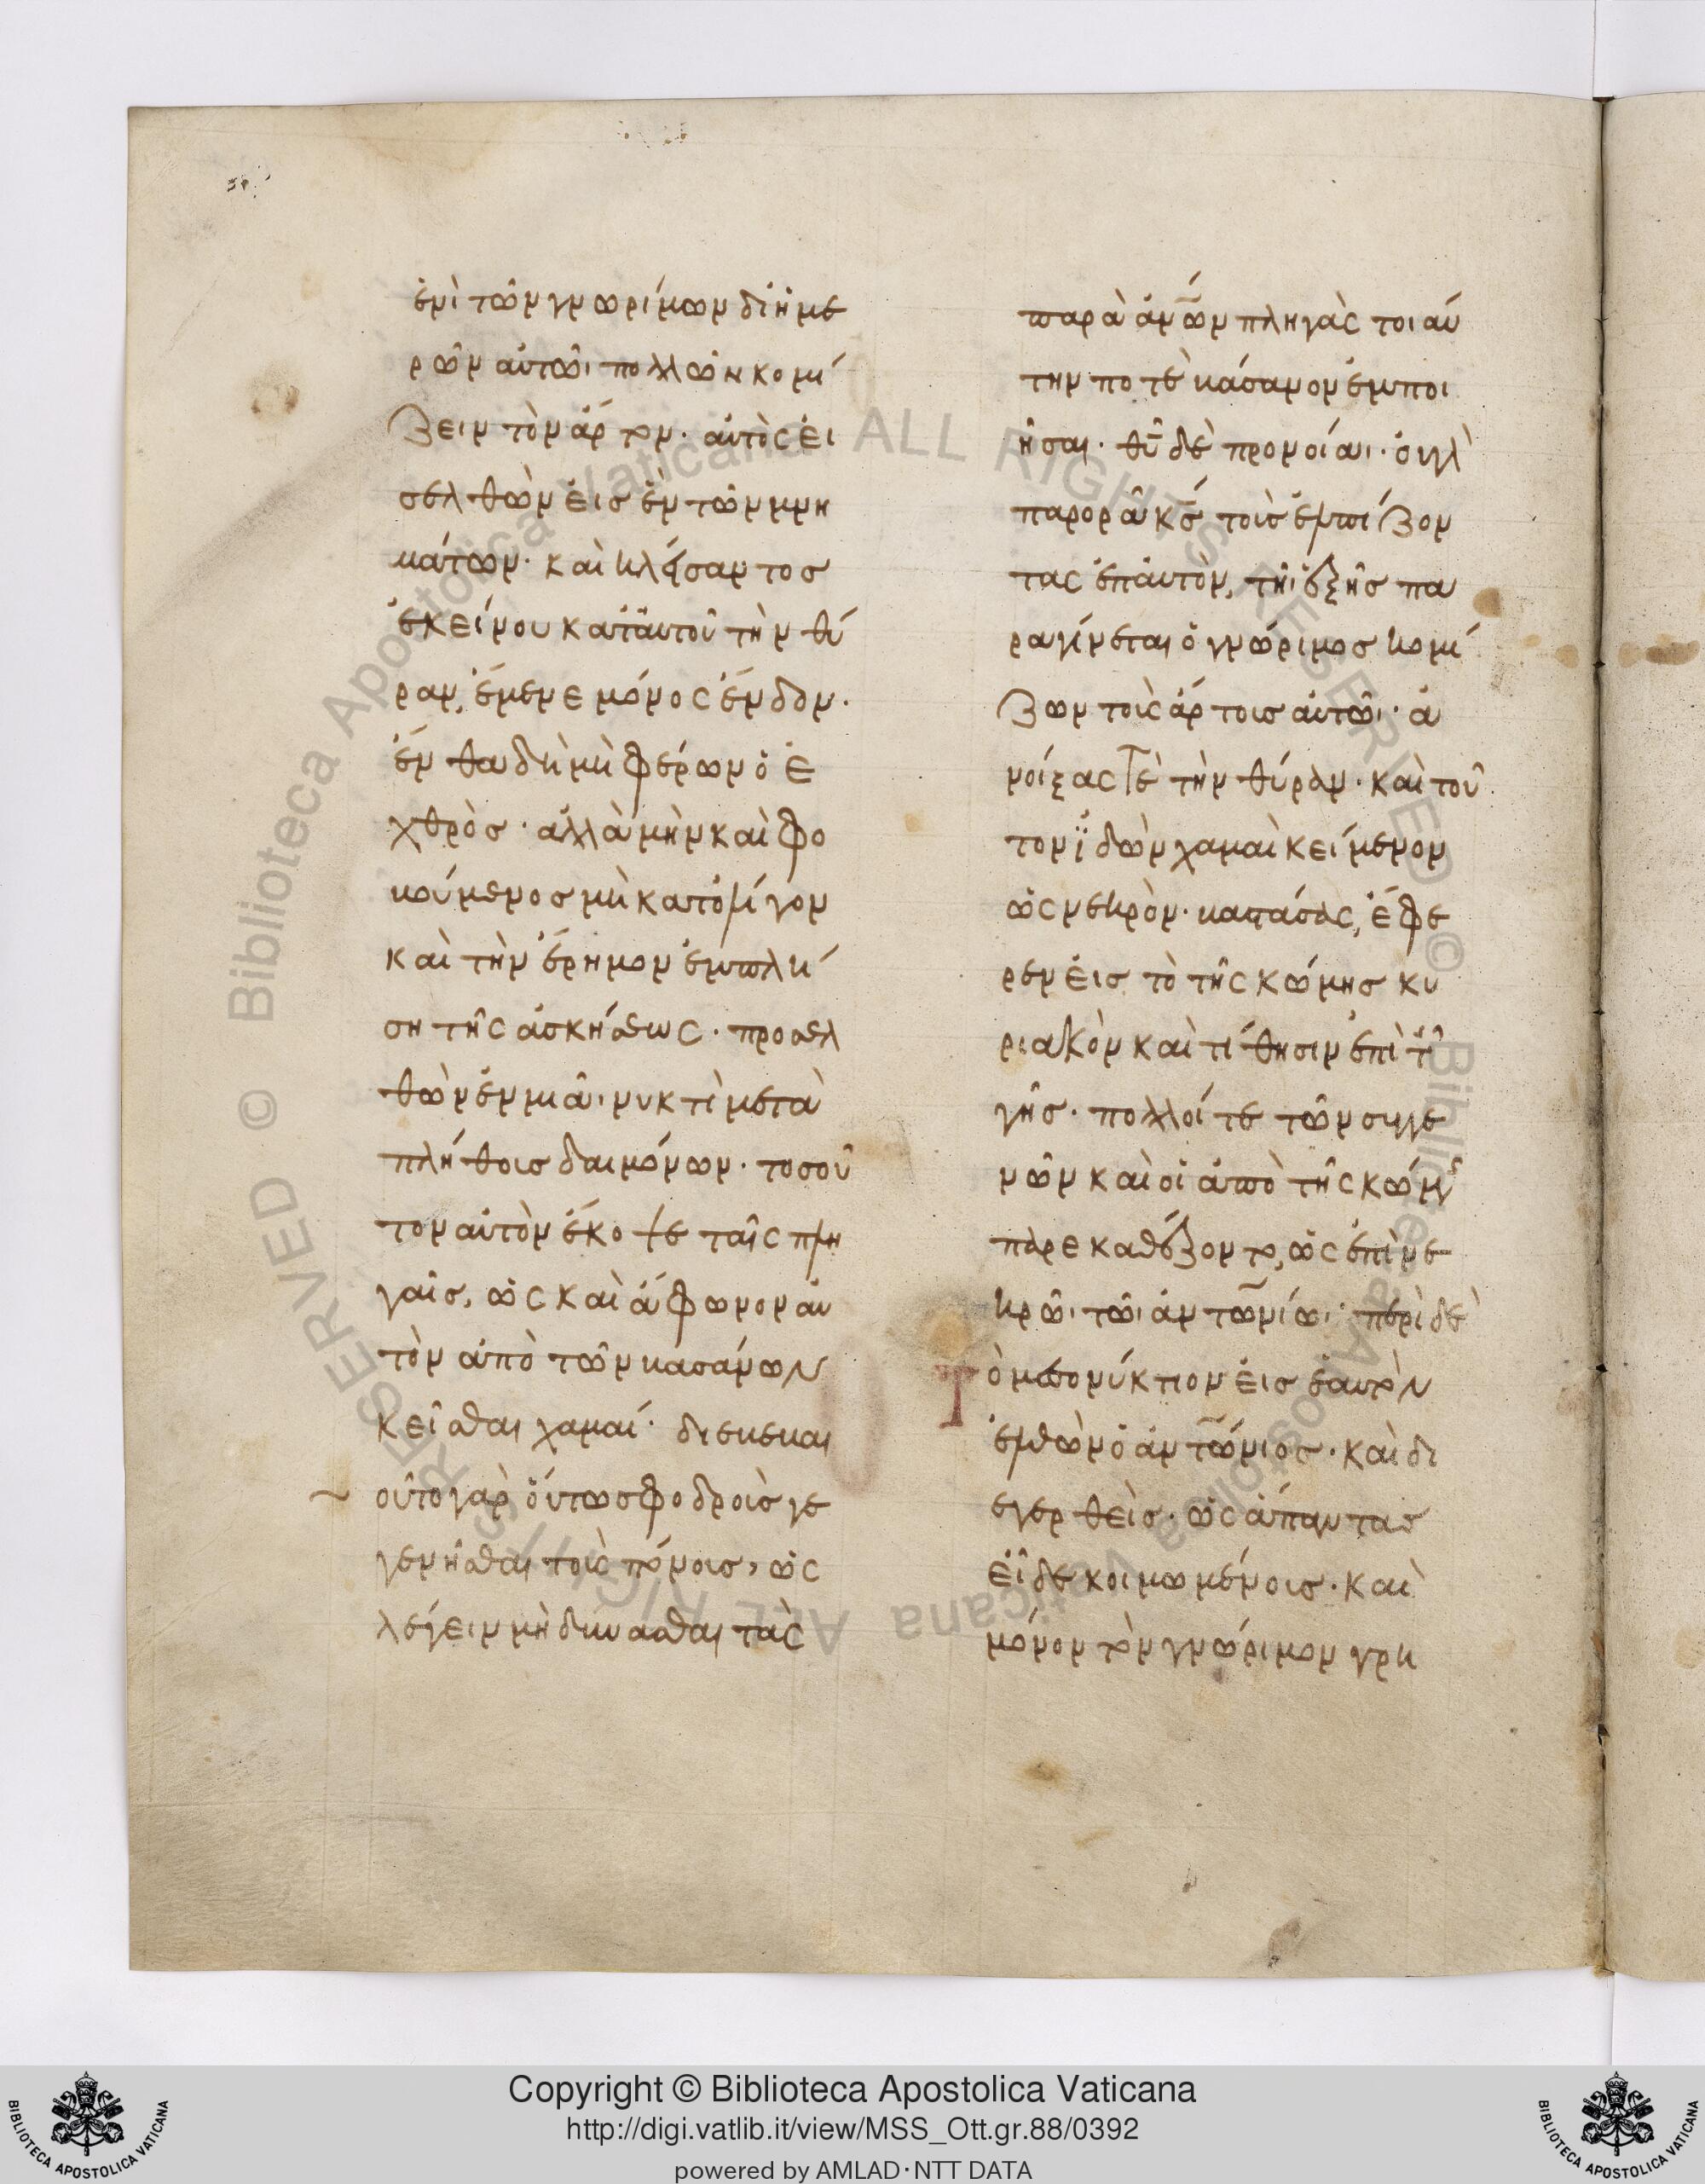 ἑνὶ τῶν γνωρίμων δι' ἡμε
ρῶν αὐτῶι πολλῶν κομί
ζειν τὸν ἄρτον· αὐτὸς εἰ
σελθὼν εἰς ἓν τῶν μνη
μάτων· καὶ κλείσαντος
ἐκείνου κατ' αὐτοῦ τὴν θύ
ραν, ἔμενε μόνος ἔνδον·
ἔνθα δὴ μὴ φέρων ὁ ἐ
χθρὸς· ἀλλὰ μὴν καὶ φο
βούμενος μὴ κατ' ὀλίγον
καὶ τὴν ἔρημον ἐμπλή
ση τῆς ἀσκήσεως· προσελ
θὼν ἐν μιᾶι νυκτὶ μετὰ
πλήθους δαιμόνων· τοσοῦ
τον αὐτὸν ἔκοψε ταῖς πλη
γαῖς, ὡς καὶ ἄφωνον αὐ
τὸν ἀπὸ τῶν βασάνων
κεῖσθαι χαμαί· διεβεβαι
οῦτο γὰρ οὕτω σφοδροὺς γε
γενῆσθαι τοὺς πόνους, ὡς
λέγειν μὴ δύνασθαι τὰς
παρὰ ἀν̅ω̅ν πληγὰς τοιαύ
την ποτὲ βάσανον ἐμποι
ῆσαι· θ̅υ̅ δὲ προνοίαι· οὐ γὰρ
παρορᾶ κ̅ς̅ τοὺς ἐλπίζον
τας ἐπ' αὐτὸν, τῆι ἑξῆς πα
ραγίνεται ὁ γνώριμος κομί
ζων τοὺς ἄρτους αὐτῶι· ἀ
νοίξας τὲ τὴν θύραν· καὶ τοῦ
τον ἰδὼν χαμαὶ κείμενον
ὡς νεκρὸν· βαστάσας, ἔφε
ρεν εἰς τὸ τῆς κώμης κυ
ριακὸν καὶ τίθησιν ἐπὶ τῆς
γῆς· πολλοί τε τῶν συγγε
νῶν καὶ οἱ ἀπὸ τῆς κώμης
παρεκαθέζοντο, ὡς ἐπὶ νε
κρῶι τῶι ἀντωνίωι· περὶ δὲ
Τὸ μεσονύκτιον εἰς ἑαυτὸν
ἐλθὼν ὁ ἀντώνιος· καὶ δι
εγερθεὶς· ὡς ἅπαντας
εἶδε κοιμωμένους· καὶ
μόνον τὸν γνώριμον γρη
Copyright © Biblioteca Apostolica Vaticana
http://digi.vatlib.it/view/MSS_Ott.gr.88/0392
powered by AMLAD·NTT DATA